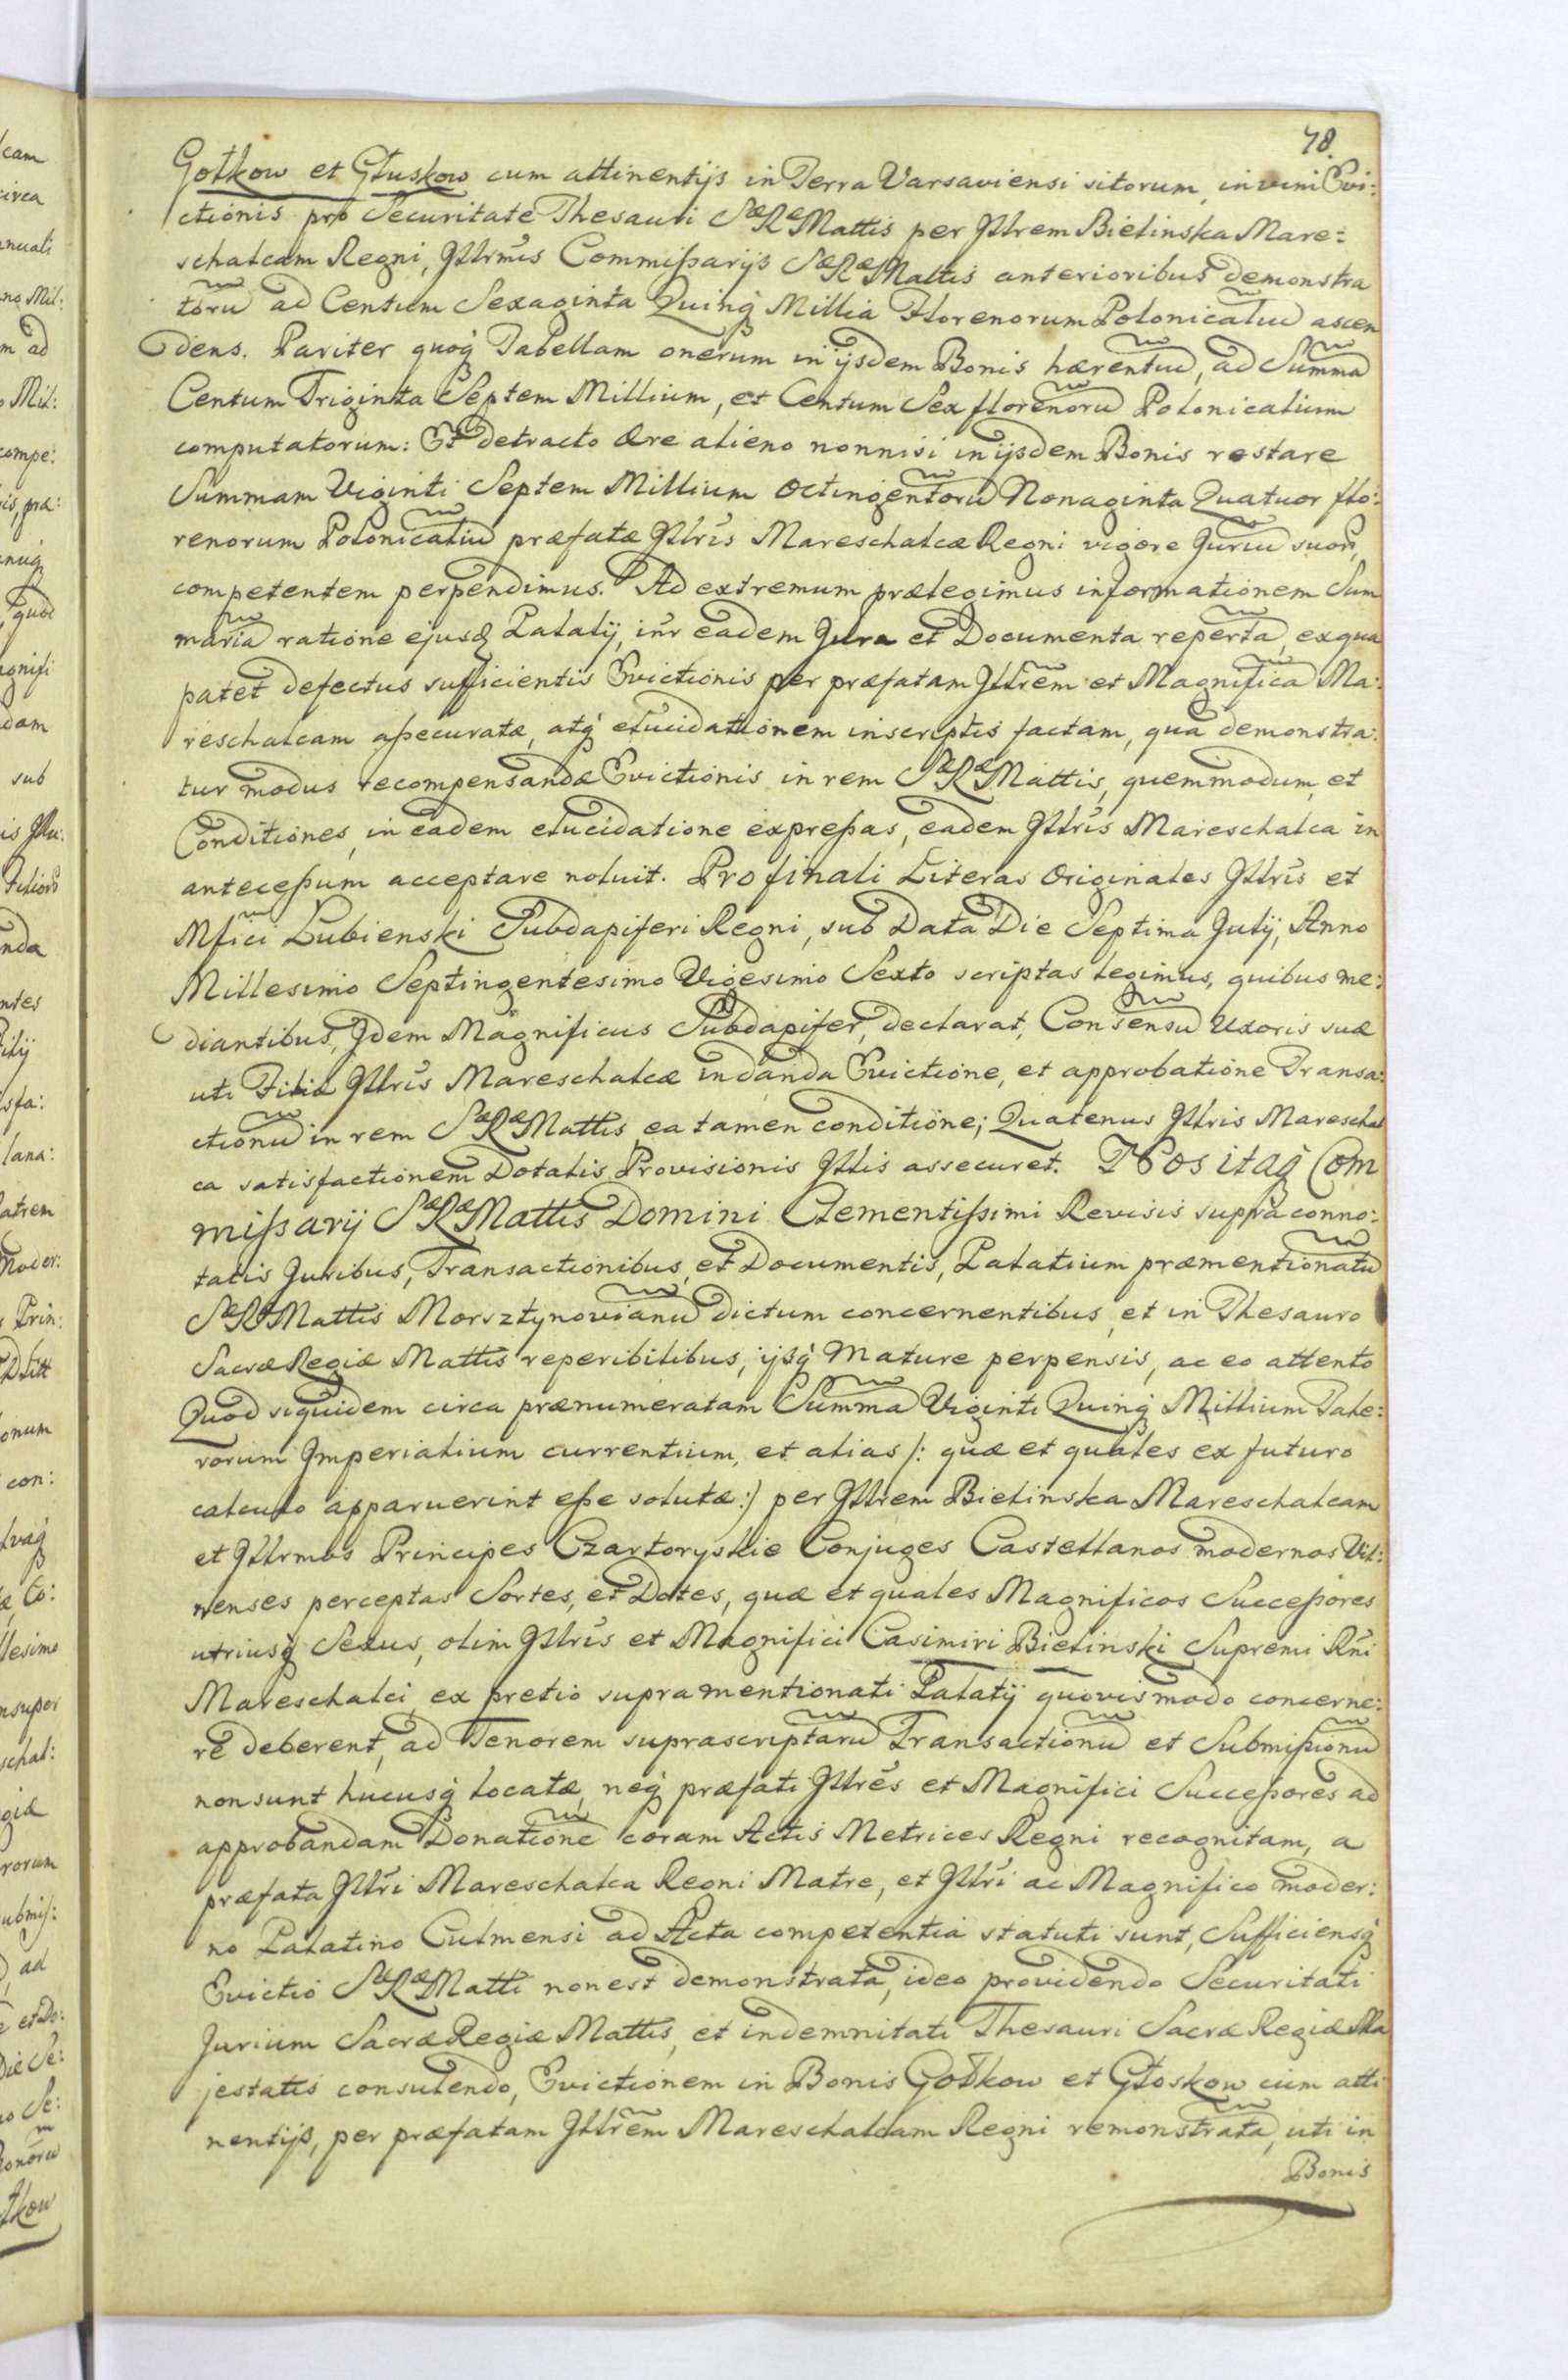 78.
Gołkow et Głuskow cum attinentijs in Terra Varsaviensi sitorum, in vim Evi:
ctionis pro Securitate Thesauri SæRæMattis per Jllrem Bielinska Mare:
schalcam Regni, Jllrmis Commißarijs SæRæMattis anterioribus demonstra
torū ad Centum Sexaginta Quinq́ Millia Florenorum Polonicaliū ascen
dens. Pariter quoq́ Tabellam onerum in ijsdem Bonis hærentiū, ad Summā
Centum Triginta Septem Millium, et Centum Sex florenorū Polonicalium
computatorum: Et detracto Ære alieno nonnisi in ijsdem Bonis restare
Summam Viginti Septem Millium Octingentorū Nonaginta Quatuor flo:
renorum Polonicaliū præfatæ Jllris Mareschalcæ Regni vigore Juriū suor,
competentem perpendimus. Ad extremum prælegimus informationem Sum
mariā ratione ejusd Palatij, inr eadem Jura et Documenta repertā, ex qua
patet defectus sufficientis Evictionis per præfatam Jllrem et Magnificā Ma:
reschalcam aßecuratæ, atq́ elucidationem in scriptis factam, qua demonstra:
tur modus recompensandæ Evictionis in rem SæRæMattis, quem modum, et
Conditiones, in eadem elucidatione expreßas, eadem Jllris Mareschalca in
anteceßum acceptare noluit. Pro finali Literas Originales Jllris et
Mfici Lubienski Subdapiferi Regni, sub Data Die Septima Julij, Anno
Millesimo Septingentesimo Vigesimo Sexto scriptas legimus, quibus me:
diantibus, Jdem Magnificus Subdapifer, declarat, Consensū Uxoris suæ
uti Filiæ Jllris Mareschalcæ in danda Evictione, et approbatione Transa:
ctionū in rem SæRæMattis ea tamen conditione; Quatenus Jllris Mareschal
ca satisfactionem Dotalis Provisionis Jllis assecuret. Nos itaq́ Com
mißarij SæRæMattis Domini Clementißimi Revisis supra conno:
tatis Juribus, Transactionibus, et Documentis, Palatium præmentionatū
SæRæMattis Morsztynovianū dictum concernentibus, et in Thesauro
Sacræ Regiæ Mattis reperibilibus, ijsq́ mature perpensis, ac eo attento
Quod siquidem circa prænumeratam Summā Viginti Quinq́ Millium Tale:
rorum Jmperialium currentium, et alias /: quæ et quales ex futuro
calculo apparuerint eße solutæ :/ per Jllrem Bielinska Mareschalcam
et Jllrmos Principes Czartoryskie Conjuges Castellanos modernos Vil:
nenses perceptas Sortes, et Dotes, quæ et quales Magnificos Succeßores
utriusq́ Sexus, olim Jllris et Magnifici Casimiri Bielinski Supremi Rni
Mareschalci, ex pretio supramentionati Palatij quovis modo concerne:
re deberent, ad Tenorem suprascriptarū Transactionū et Submißionū
non sunt hucusq́ locatæ, neq́ præfati Jllres et Magnifici Succeßores ad
approbandam Donationē coram Actis Metrices Regni recognitam, a
præfata Jllri Mareschalca Regni Matre, et Jllri ac Magnifico moder:
no Palatino Culmensi ad Acta competentia statuti sunt, Sufficiensq́
Evictio SæRæMatti non est demonstrata, ideo providendo Securitati
Jurium Sacræ Regiæ Mattis, et indemnitati Thesauri Sacræ Regiæ Ma
jestatis consulendo, Evictionem in Bonis Gołkow et Głoskow cum atti
nentijs, per præfatam Jllrem Mareschalcam Regni remonstratā, uti in
Bonis